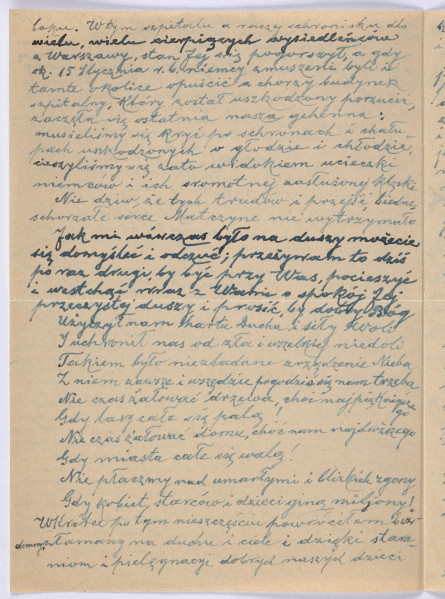 boku. W tym szpitalu a raczej schronisku dla
wielu, wielu cierpiących wysiedleńców
z Warszawy, stan Jej się pogorszył, a gdy
ok. 15 Stycznia r. b. niemcy zmuszeni byli
tamte okolice opuścić a chorzy budynek
szpitalny, który został uszkodzony porzucić,
zaczęła się ostatnia nasza gehenna:
musieliśmy się kryć po schronach i chału-
pach uszkodzonych w głodzie i chłodzie,
cieszyliśmy się zato widokiem ucieczki
niemców i ich sromotnej zasłużonej klęski
Nie dziw, że tych trudów i przejść biedne,
schorzałe serce Matczyne nie wytrzymało
Jak mi wówczas było na duszy możecie
się domyśleć i odczuć; przeżywam to dziś
po raz drugi, by być przy Was, pocieszyć
i westchąć wraz z Wami o spokój Jej
przeczystej duszy i prosić, by dobry Bóg
Użyczył nam hartu Ducha i siły Woli
I uchronił nas od zła i wszelkiej niedoli
Takiem było niezbadane zrządzenie Nieba
Z niem zawsze i wszędzie pogodzić się nam trzeba
Nie czas żałować drzewa, choć najpiękniejsze
go
Gdy lasy całe się palą!
Nie czas żałować domu, choć nam najdroższego
Gdy miasta całe się walą!
Nie płaczmy nad umarłymi i bliskich zgony
Gdy kobiet, starców i dzieci giną miljony!
Wkrótce po tym nieszczęściu powróciłem
złamany na duchu i ciele i dzięki stara-
niom i pielęgnacji dobrych naszych dzieci